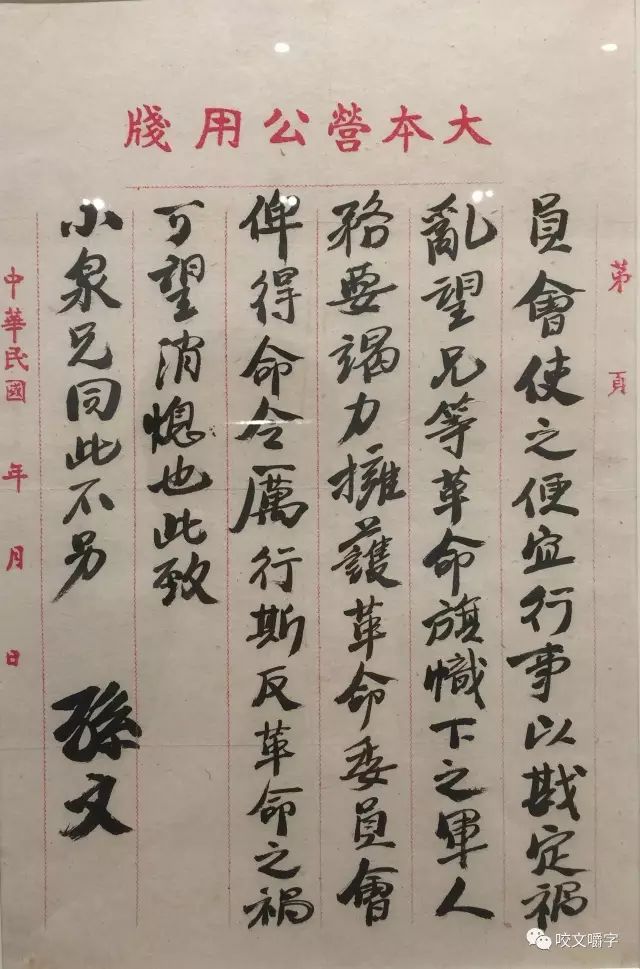 大本營公用牋
第 頁
員會使之便宜行事以戡定禍
亂望兄等革命旗幟下之軍人
務要竭力擁護革命委員會
俾得命令厲行斯反革命之禍
可望消熄也此致
小泉兄同此不另
孫文
中華民國 年 月 日
咬文嚼字